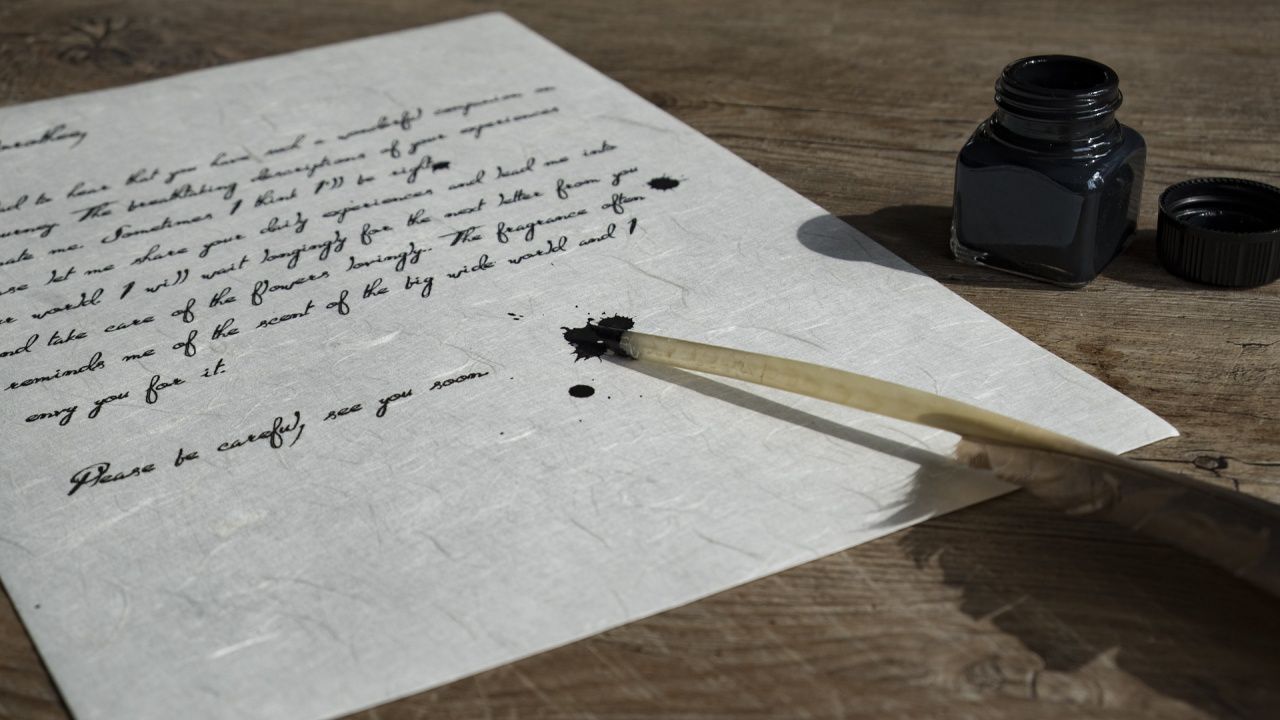 to hear that you have such a wonderful companion on
urney. The breathtaking descriptions of your experiences
nate me. Sometimes I think I'll be right
ase let me share your daily experiences and lead me into
r world I will wait longingly for the next letter from you
nd take care of the flowers lovingly. The fragrance often
reminds me of the scent of the big wide world and I
envy you for it.
Please be careful, see you soon